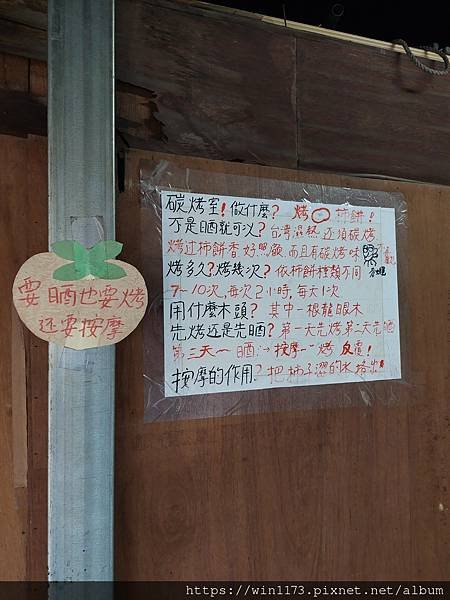 要晒也要烤
还要按摩
碳烤室！做什麼？烤○柿餅！
不是晒就可以？台湾濕热还須碳烤
烤过柿餅香 好 而且有碳烤味
烤多久？烤幾次？依柿餅種類不同
7~10次，每次2小時，每天1次
用什麼木頭？其中一根龍眼木
先烤还是先晒？第一天先烤第二天先晒
第三天~晒→按摩~烤 反覆！
按摩的作用？把柿子澀的水
https://win1173.pixnet.net/album